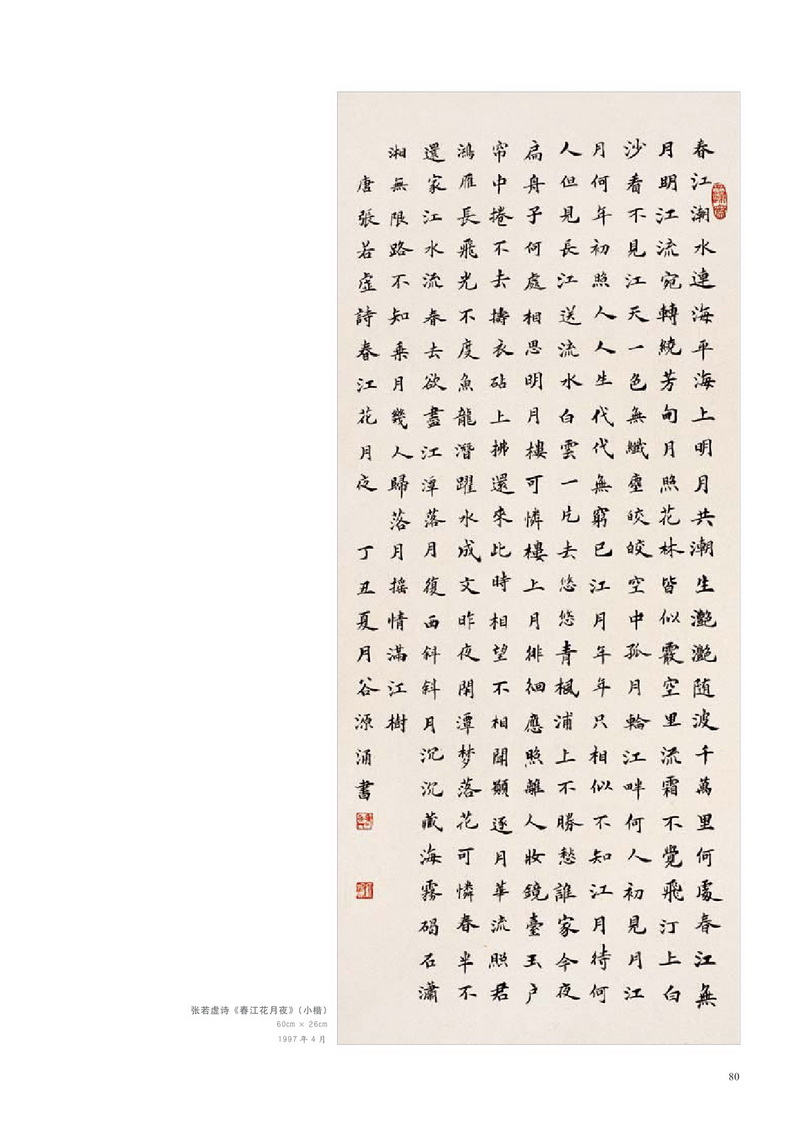 春江潮水連海平海上明月共潮生灧灧随波千萬里何處春江無
月明江流宛轉繞芳甸月照花林皆似霰空里流霜不覺飛汀上白
沙看不見江天一色無纖塵皎皎空中孤月輪江畔何人初見月江
月何年初照人人生代代無窮已江月年年只相似不知江月待何
人但見長江送流水白雲一片去悠悠青楓浦上不勝愁誰家今夜
扁舟子何處相思明月樓可憐樓上月徘徊應照離人妝鏡臺玉户
帘中捲不去擣衣砧上拂還來此時相望不相聞願逐月華流照君
鴻雁長飛光不度魚龍潛躍水成文昨夜閑潭梦落花可憐春半不
還家江水流春去欲盡江潭落月復西斜斜月沉沉藏海霧碣石瀟
湘無限路不知乘月幾人歸落月摇情滿江樹
唐張若虛詩春江花月夜 丁丑夏月谷源涌書
张若虚诗《春江花月夜》（小楷）
60cm × 26cm
1997 年 4 月
80